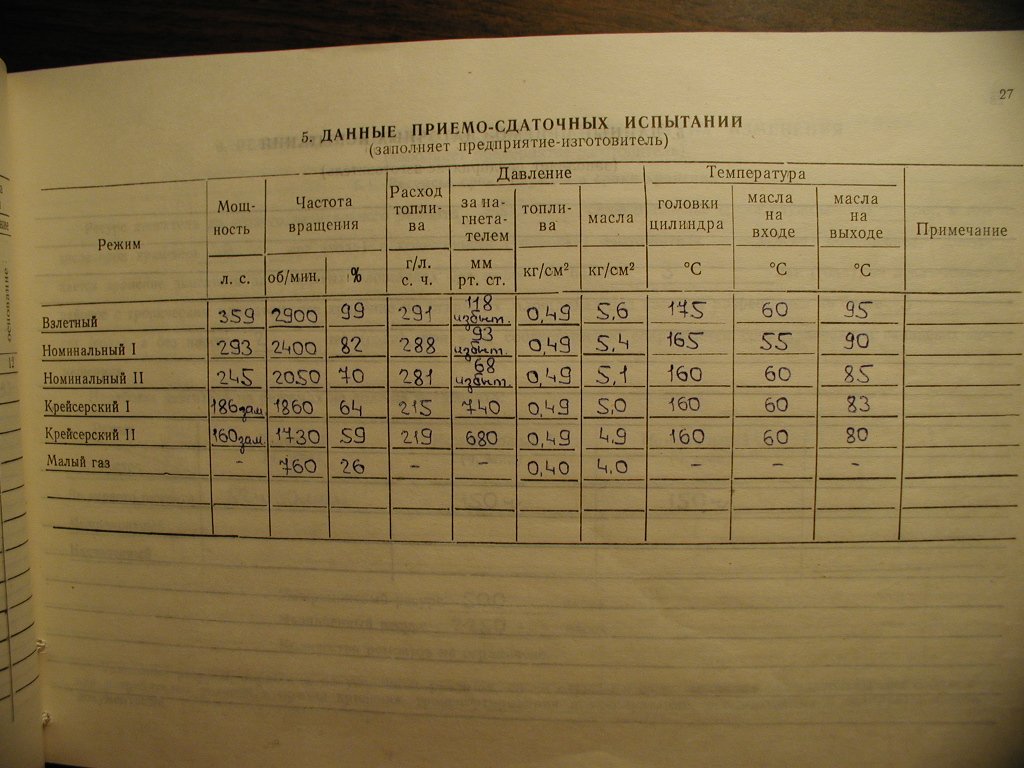 27
5. ДАННЫЕ ПРИЕМО-СДАТОЧНЫХ ИСПЫТАНИИ
(заполняет предприятие-изготовитель)
Режим Мощ- ность Частота вращения Расход топли- ва Давление Температура Примечание
за на- гнета- телем топли- ва масла головки цилиндра масла на входе масла на выходе
л. с. об/мин. % г/л. с. ч. мм рт. ст. кг/см² кг/см² °С °С °С
Взлетный 359 2900 99 291 118 избыт. 0,49 5,6 175 60 95
Номинальный I 293 2400 82 288 93 избыт. 0,49 5,4 165 55 90
Номинальный II 245 2050 70 281 68 избыт. 0,49 5,1 160 60 85
Крейсерский I 186 зам. 1860 64 215 740 0,49 5,0 160 60 83
Крейсерский II 160 зам. 1730 59 219 680 0,49 4.9 160 60 80
Малый газ - 760 26 - - 0,40 4.0 - - -
основание